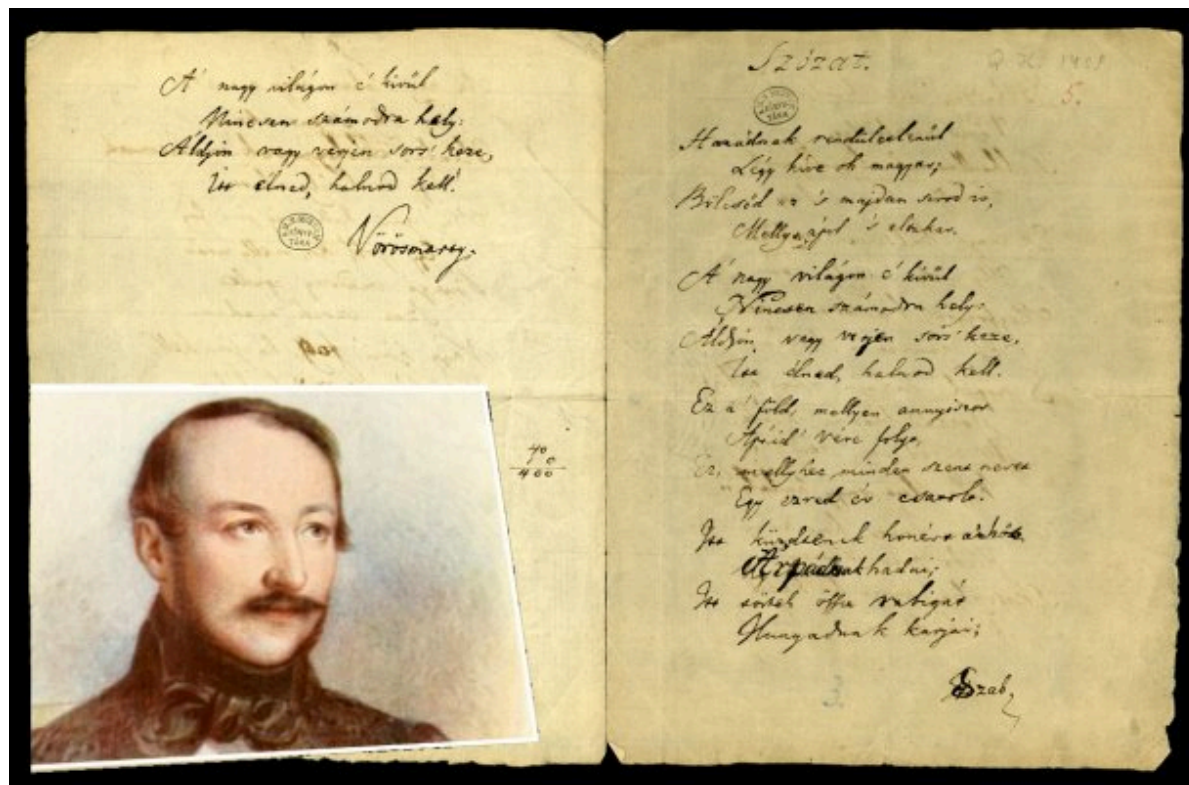 A' nagy világon e' kivűl
Nincsen számodra hely:
Áldjon vagy verjen sors' keze,
Itt élned, halnod kell!
Vörösmarty.
40
400
Szózat.
5.
Hazádnak rendületlenűl
Légy híve oh magyar;
Bölcsőd ez 's majdan sírod is,
Melly ápol 's eltakar.
A' nagy világon e' kivűl
Nincsen számodra hely:
Áldjon, vagy verjen sors' keze,
Itt élned, halnod kell.
Ez a' föld, mellyen annyiszor
Apáid' vére folyt,
Ez, mellyhez minden szent nevet
Egy ezred év csatolt.
Itt küzdtenek honért a' hős
Árpádnak hadai;
Itt törtek össze rabigát
Hunyadnak karjai;
Szab,